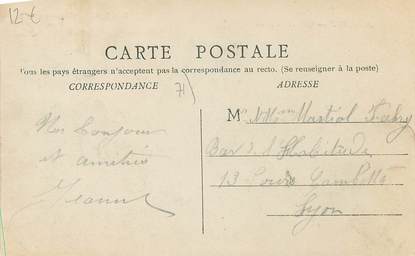 12 €
CARTE POSTALE
Tous les pays étrangers n'acceptent pas la correspondance au recto. (Se renseigner à la poste)
CORRESPONDANCE
71
ADRESSE
M Martial
Nos bonjours
Bar de l'Habitude
et amitiés
13 Cours Gambetta
Jeanne
Lyon